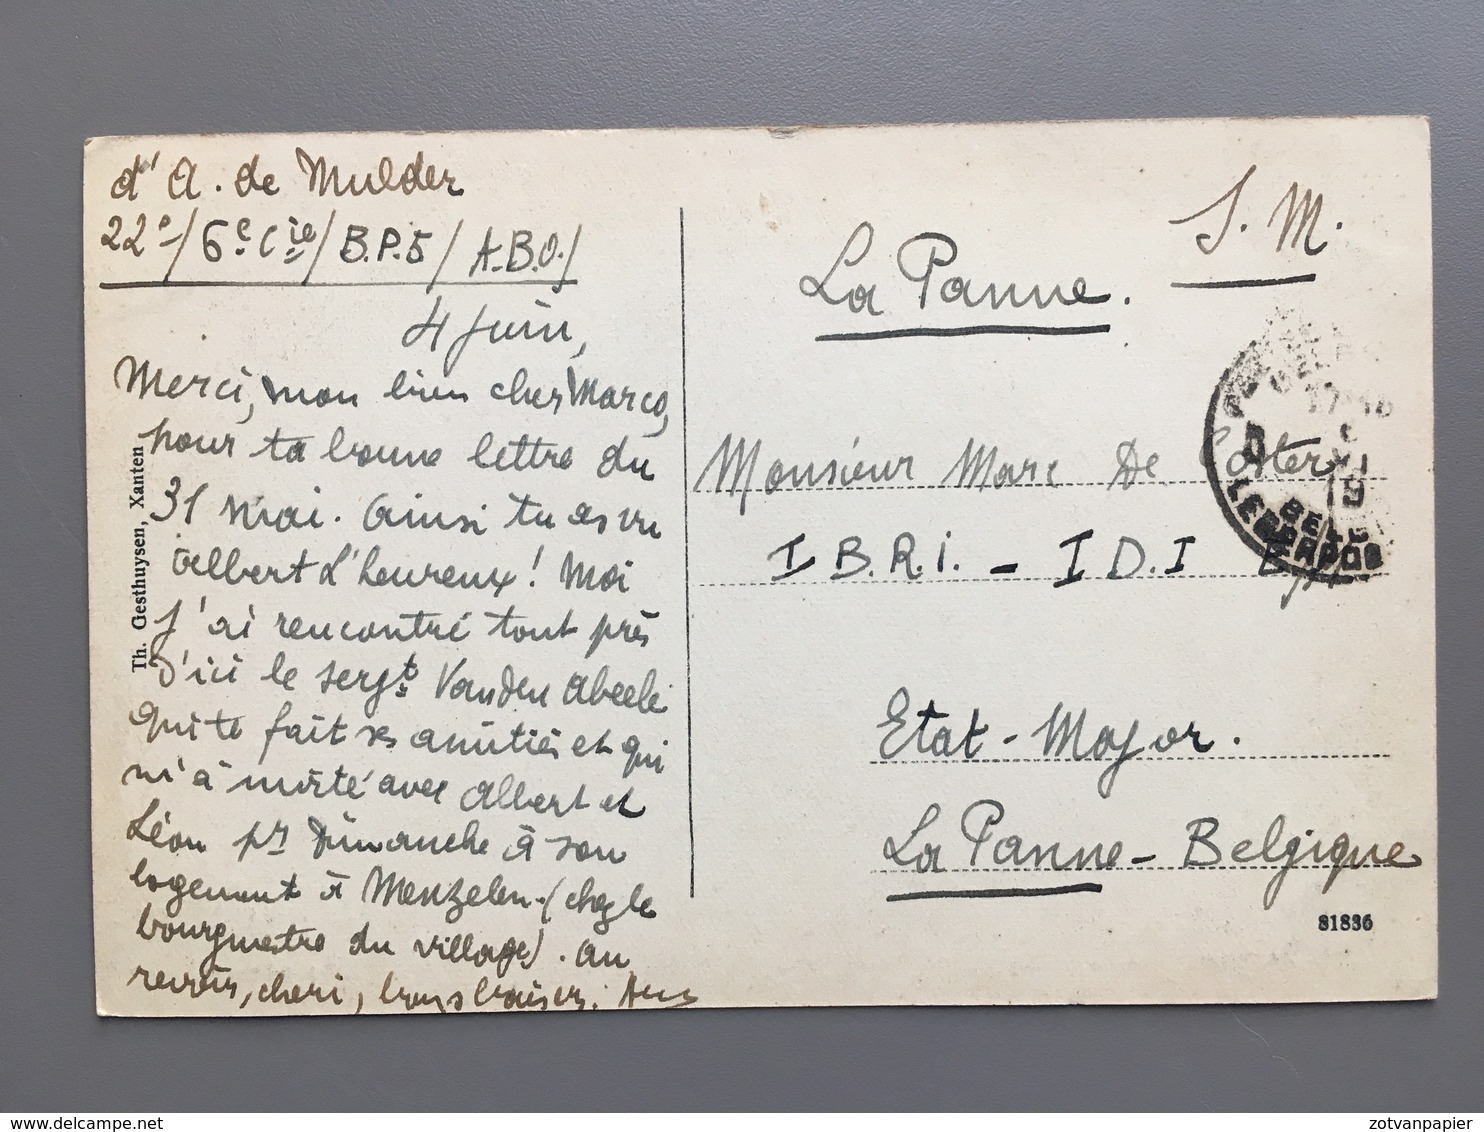 d'A. de Mulder
22e/6e Cie/B.P.5/A.B.O/
4 Juin,
Merci, mon bien cher Marco,
pour ta bonne lettre du
31 mai. Ainsi tu as vu
Albert L'heureux! Moi
j'ai rencontré tout près
d'ici le sergt Vanden Abeele
qui te fait ses amitiés et qui
m'a invité avec Albert et
Léon pr Dimanche à son
logement à Menzelen (chez le
bourgmestre du village). au
revoir, cheri, bons baisers.
Th. Gesthuysen, Xanten
S. M.
La Panne.
Monsieur Marc De Coster
I B.R.I. - I D.I
Etat-Major.
La Panne - Belgique
81836
BELG
LEGERPOS